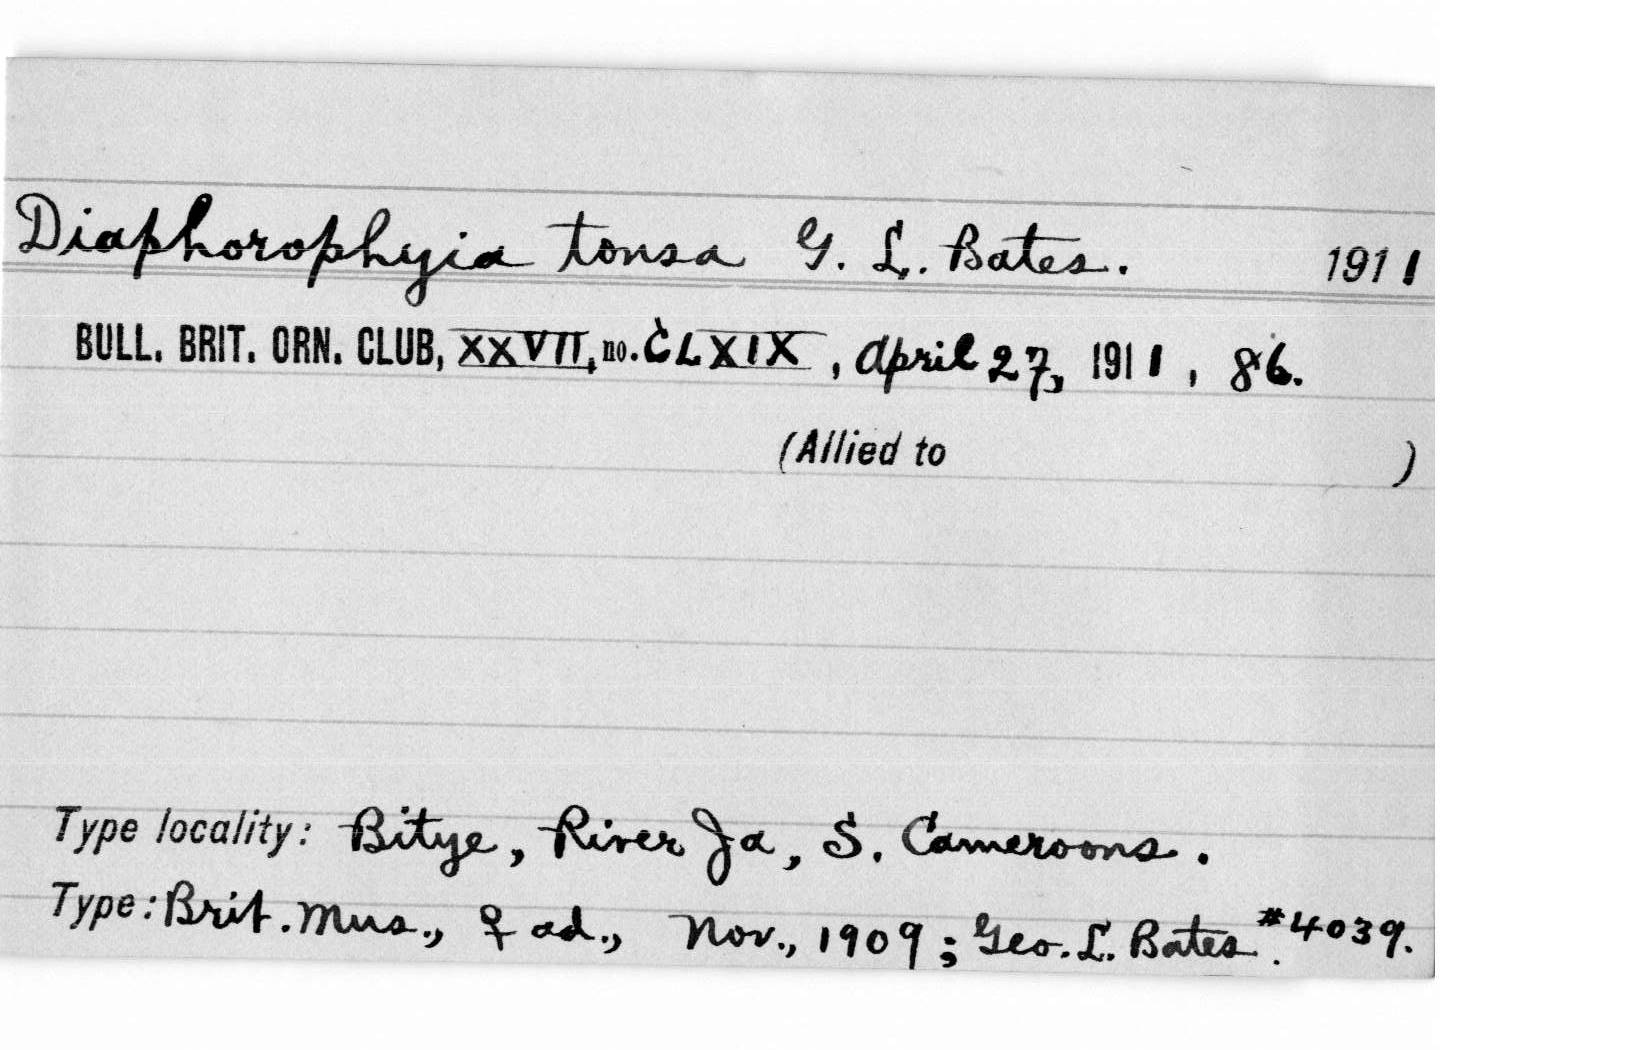 Diaphorophyia tonsa G. L. Bates. 1911
BULL. BRIT. ORN. CLUB, XXVII, no. CLXIX, April 27, 1911, 86.
(Allied to )
Type locality: Bitye, River Ja, S. Cameroons.
Type: Brit. Mus., ♀ ad., Nov., 1909; Geo. L. Bates. #4039.